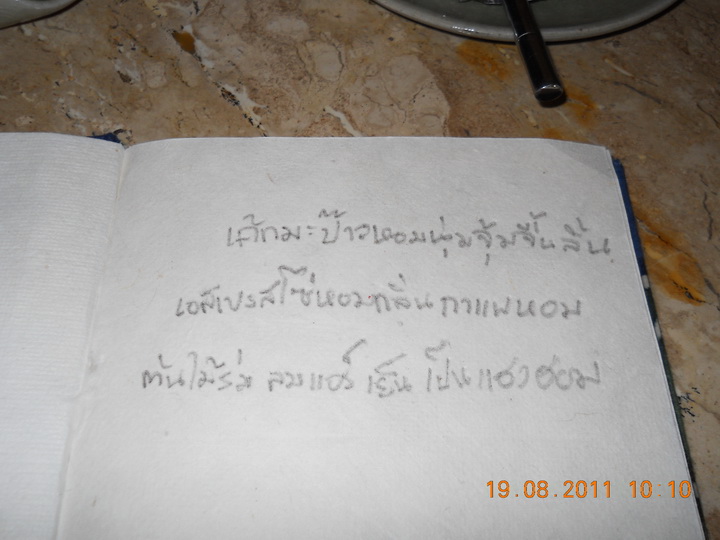 เค้กมะป๊าวหอมนุ่มจุ้มจิ้นลิ้น
เอสเปรสโซ่หอมกลิ่นกาแฟหอม
ต้นไม้ร่ม ลมแอร์ เย็น เป็น
19.08.2011 10:10